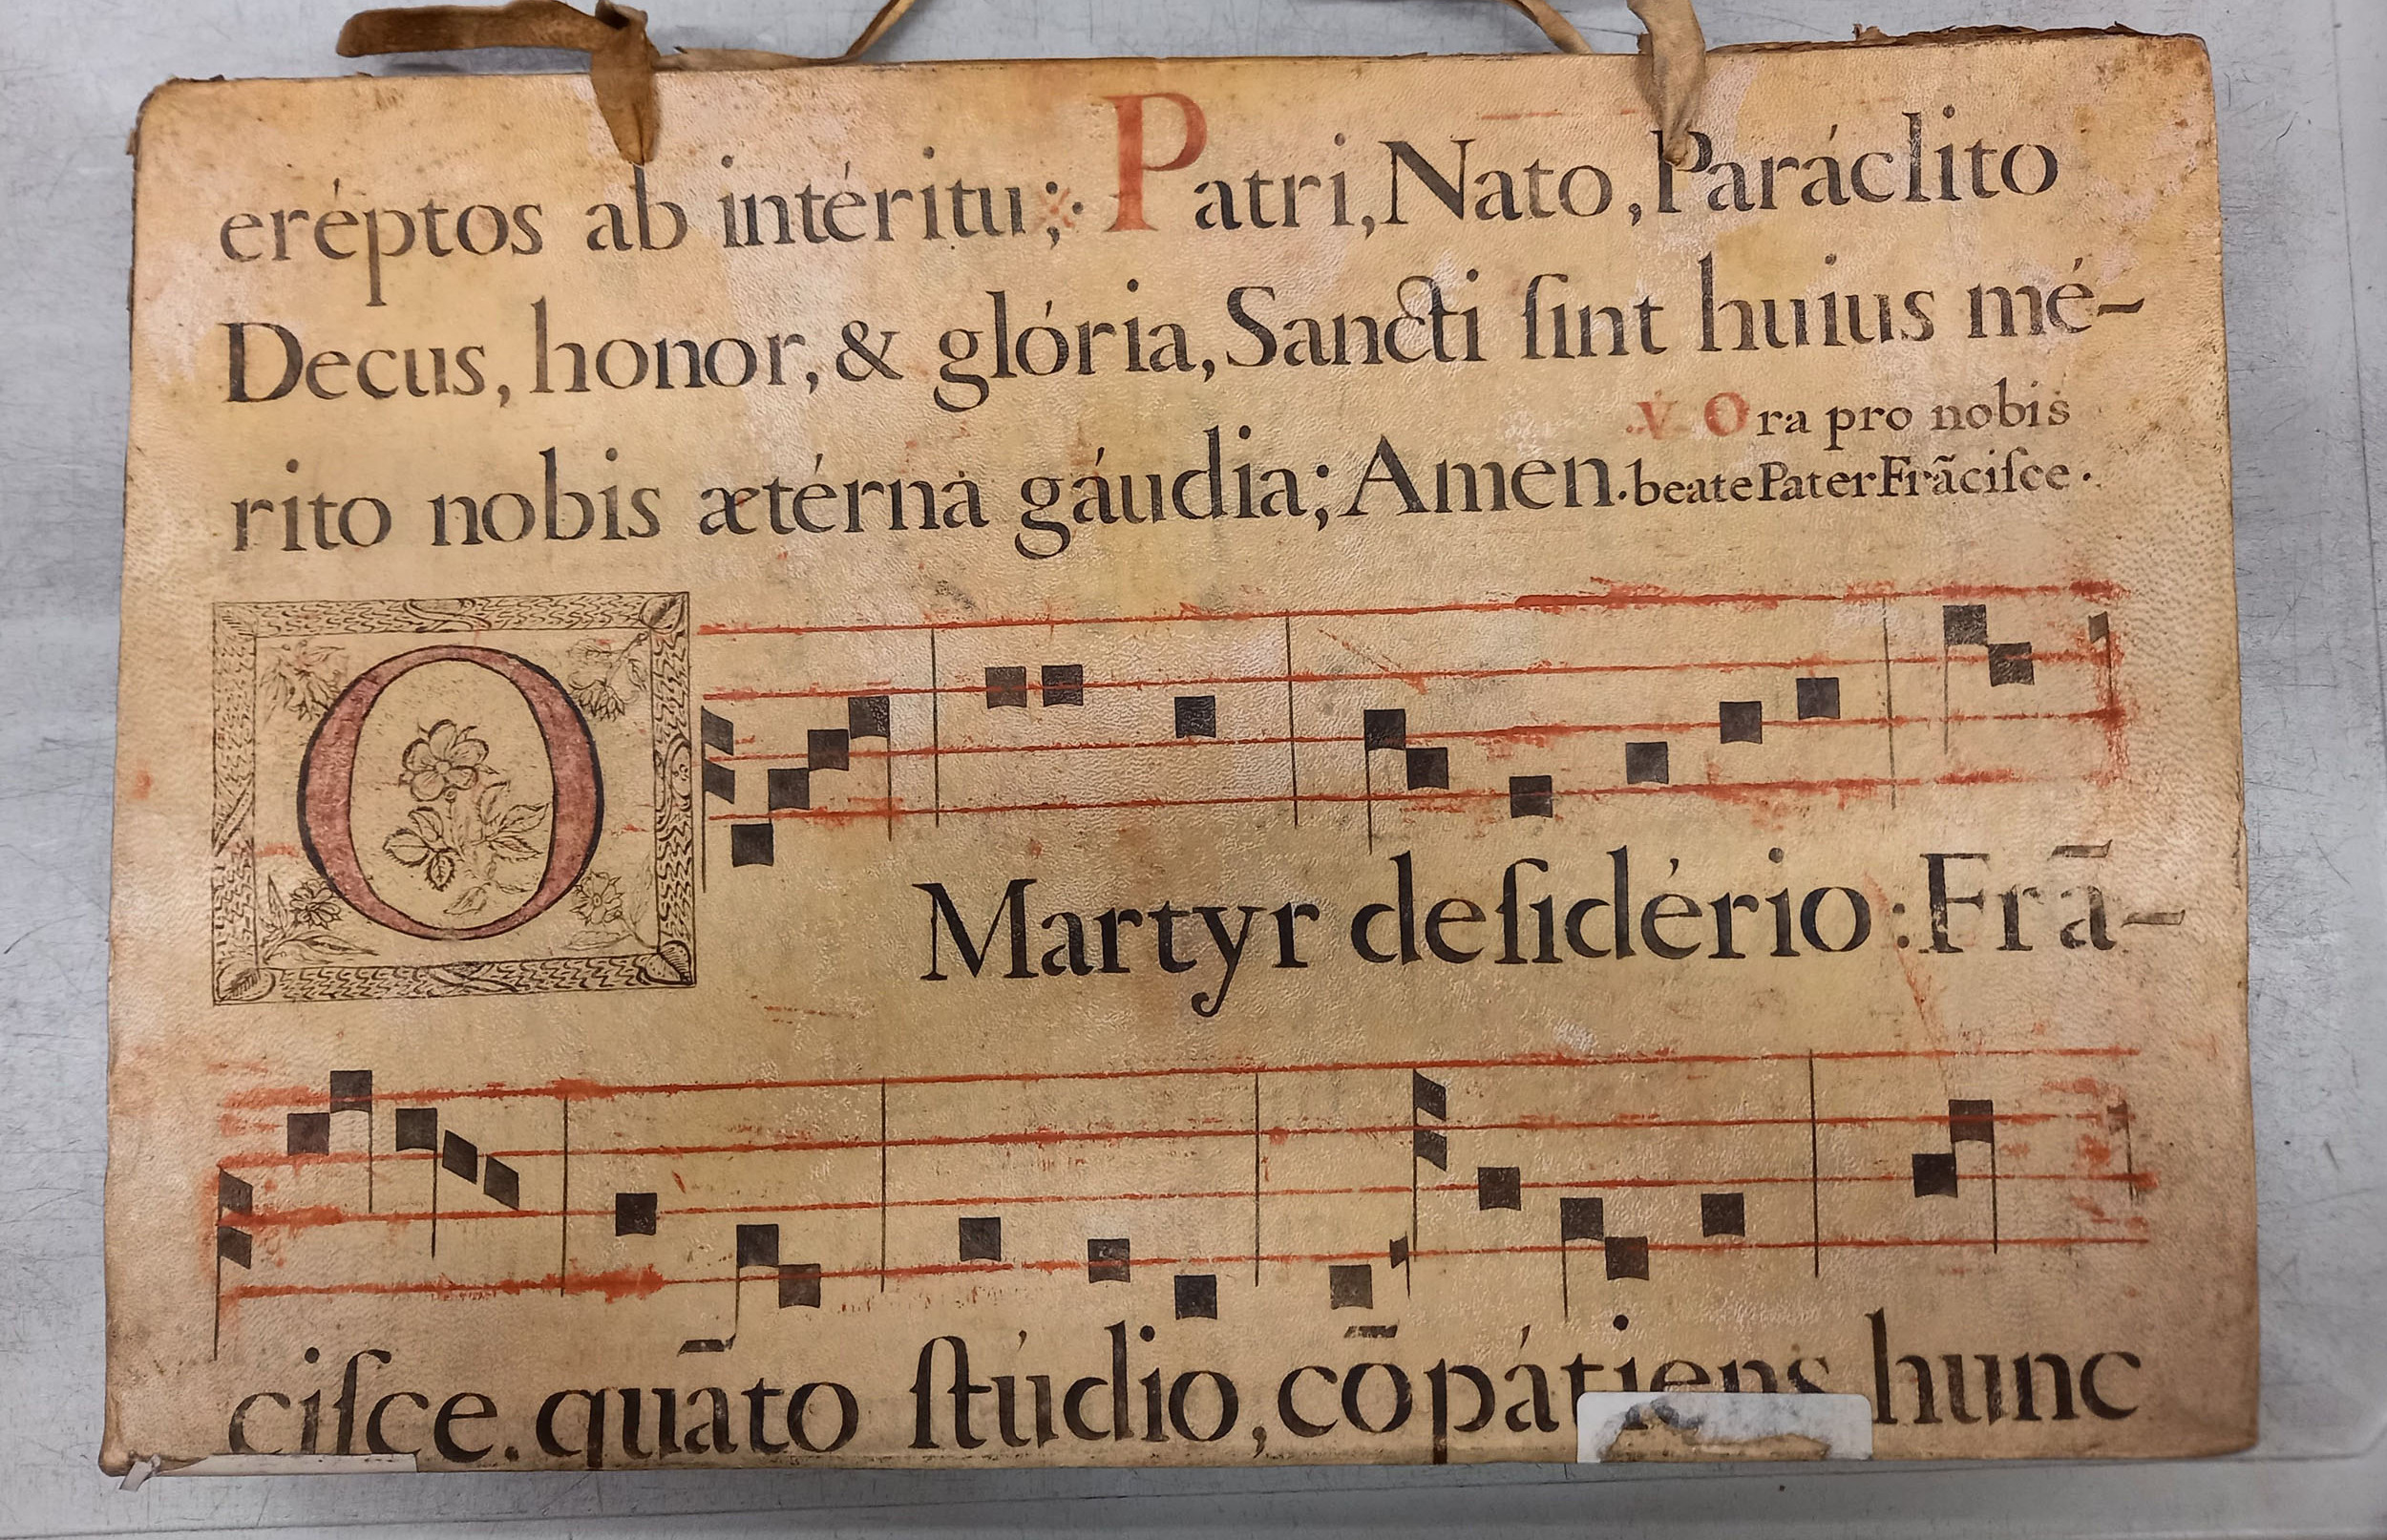 eréptos ab intéritu; Patri, Nato, Paráclito
Decus, honor, & glória, Sancti ſint huius mé-
℣. Ora pro nobis
rito nobis ætérna gáudia; Amen. beate Pater Frãciſce.
O Martyr deſidério: Frã-
ciſce. quãto ſtúdio, cõpátiens hunc